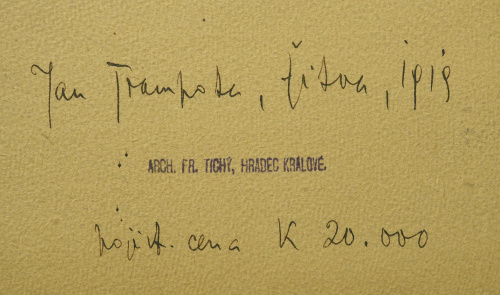 Jan Trampota, Žitva, 1919
ARCH. FR. TICHÝ, HRADEC KRÁLOVÉ.
pojist. cena K 20.000